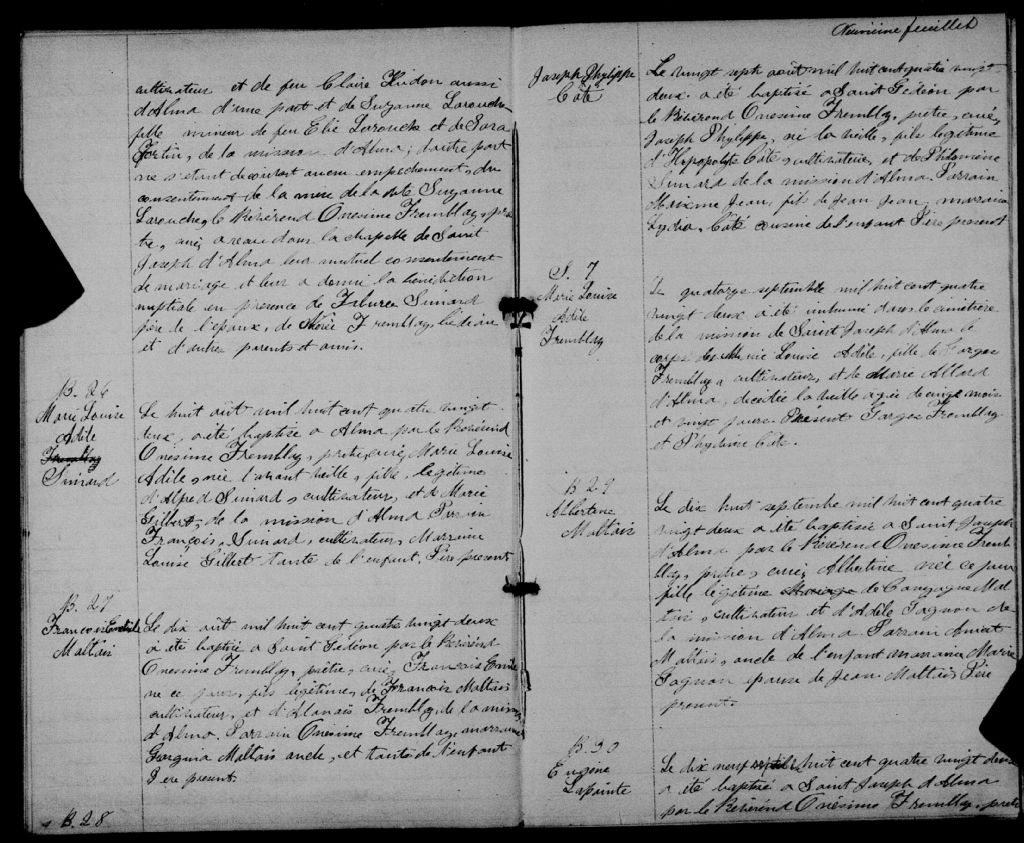 cultivateur et de feu Claire Hudon aussi
d'Alma d'une part et de Suzanne Larouche
fille mineur de feu Elie Larouche et de Sara
Fortin, de la mission d'Alma, d'autre part
ne s'étant découvert aucun empêchement, du
consentement de la mère de la dite Suzanne
Larouche, le Révérend Onesime Tremblay, prê
tre, curé, a reçu dans la chapelle de Saint
Joseph d'Alma leur mutuel consentement
de mariage et leur a donné la bénédiction
nuptiale en présence de Tiburce Simard
père de l'époux, de Tremblay, bedeau
et d'autres parents et amis.
B. 26
Marie Louise
Adile
Tremblay
Simard
Le huit août mil huit cent quatre vingt
deux, a été baptisé a Alma par le Révérend
Onesime Tremblay, prêtre, curé, Marie Louise
Adile, née l'avant veille, fille légitime
d'Alfred Simard, cultivateur, et de Marie
Gilbert, de la mission d'Alma Parrain
François Simard, cultivateur, Marraine
Louise Gilbert tante de l'enfant. Père présent
B. 27
François Emile
Maltais
Le dix août mil huit cent quatre vingt deux
a été baptisé a Saint Gédéon par le Révérend
Onesime Tremblay, prêtre, curé, François Emile
né ce jour, fils légitime, de François Maltais
cultivateur, et d'Alanais Tremblay, de la mission
d'Alma. Parrain Onesime Tremblay, marraine
Georgina Maltais oncle, et tante de l'enfant
Père présent
B. 28
Neuvième feuillet
Joseph Phylippe
Côté
Le vingt sept août mil huit cent quatre vingt
deux a été baptisé a Saint Gédéon par
le Révérend Onesime Tremblay, prêtre, curé,
Joseph Phylippe, né la veille, fils légitime
d'Hypopolyte Côté, cultivateur, et de Philomène
Simard de la mission d'Alma. Parrain
Maxime Jean, fils de Jean Jean, marraine
Lydia, Côté cousine de l'enfant Père présent
S. 7
Marie Louise
Adile
Tremblay
Le quatorze septembre mil huit cent quatre
vingt deux a été inhumé dans le cimetière
de la mission de Saint Joseph d'Alma le
corps de Marie Louise Adile, fille de Gorges
Tremblay, cultivateur, et de Marie Allard
d'Alma, décédée la veille agée de mois
et vingt jours. Présent Gorges Tremblay
et Phydime Côté.
B 29
Albertine
Maltais
Le dix huit septembre mil huit cent quatre
vingt deux a été baptisée a Saint Joseph
d'Alma par le Révérend Onesime Trem
blay, prêtre, curé, Albertine née ce jour
fille légitime de Mal
tais, cultivateur et d'Adèle Gagnon de
la mission d'Alma. Parrain
Maltais, oncle de l'enfant marraine Marie
Gagnon épouse de Jean Maltais, Père
présent.
B. 30
Eugène
Lapointe
Le dix neuf huit cent quatre vingt deux
a été baptisé a Saint Joseph d'Alma
par le Révérend Onesime Tremblay, prêtre